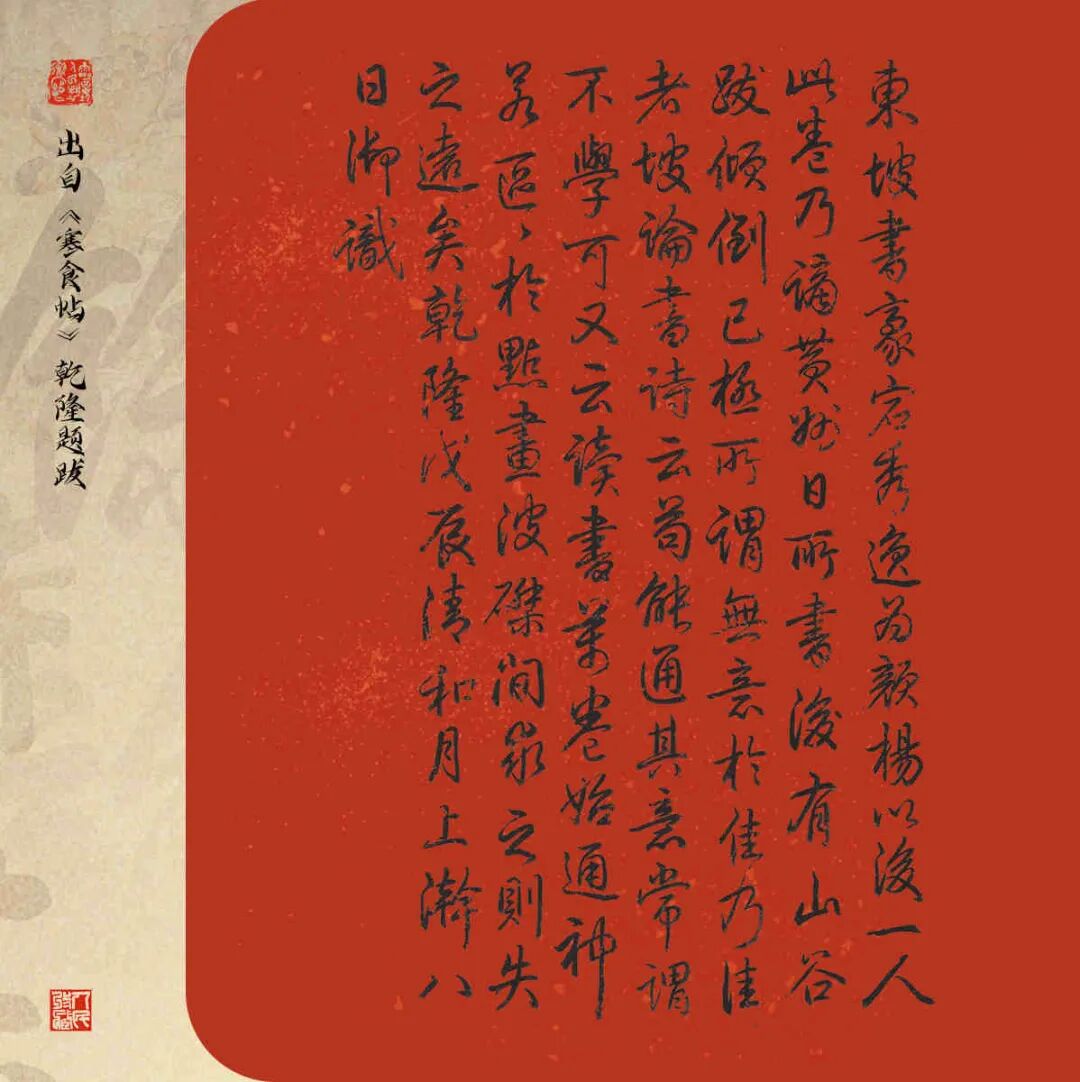 東坡書豪宕秀逸為顏楊以後一人
此卷乃謫黃州日所書後有山谷
跋傾倒已極所謂無意於佳乃佳
者坡論書詩云苟能通其意常謂
不學可又云讀書萬卷始通神
若區〻於點畫波磔間求之則失
之遠矣乾隆戊辰清和月上澣八
日御識
出自《寒食帖》乾隆題跋